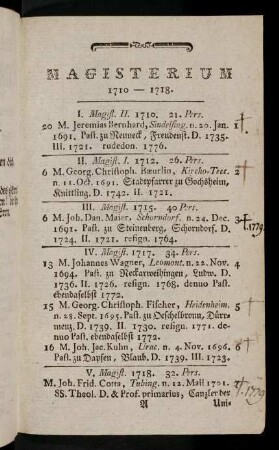 MAGISTERIUM
1710 — 1718.
I. Magist. II. 1710. 21. Pers.
20 M. Jeremias Bernhard, Sindelfing. n. 20. Jan. 1
1691. Past. zu Renneck, Freudenst. D. 1735.
III. 1721. rudedon. 1776.
II. Magist. I. 1712. 26. Pers.
6 M. Georg. Christoph. Bœurlin, Kircho-Tecc. 2
n. 11. Oct. 1691. Stadtpfarrer zu Gochsheim,
Knittling. D. 1742. II. 1721.
III. Magist. 1715. 40 Pers.
6 M. Joh. Dan. Maier, Schorndorf. n. 24. Dec. 3 1779.
1691. Past. zu Steinenberg, Schorndorf. D.
1724. II. 1721. resign. 1764.
IV. Magist. 1717. 34. Pers.
13 M. Johannes Wagner, Leomont. n. 22. Nov. 4
1694. Past. zu Neckarweihingen, Ludw. D.
1736. II. 1726. resign. 1768. denuo Past.
ebendaselbst 1772.
15 M. Georg. Christoph. Fischer, Heidenheim. 5
n. 28. Sept. 1695. Past. zu Oeschelbronn, Dürr-
menz. D. 1739. II. 1730. resign. 1771. de-
nuo Past. ebendaselbst 1772.
16 M. Joh. Jac. Kuhn, Urac. n. 4. Nov. 1696. 6
Past. zu Dapfen, Blaub. D. 1739. III. 1723.
V. Magist. 1718. 32. Pers.
M. Joh. Frid. Cotta, Tubing. n. 12. Maii 1701. 7 1779
SS. Theol. D. & Prof. primarius, Canzler der
A Uni-